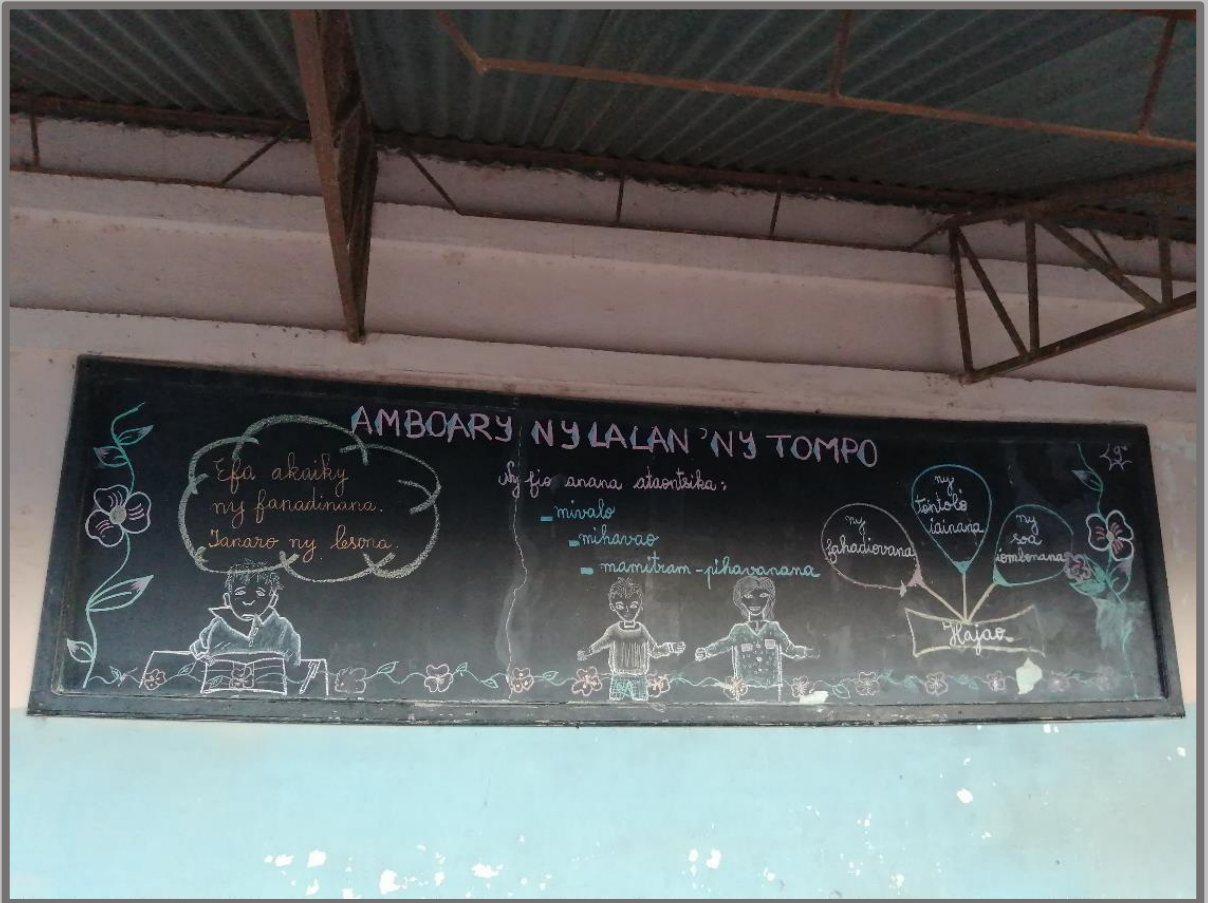 AMBOARY NY LALAN'NY TOMPO
Efa akaiky
ny fanadinana.
Ianaro ny lesona.
Ny fio anana ataontsika:
- mivalo
- mihavao
- mamitram-pihavanana
ny
fahadiovana
ny
tontolo
iainana
ny
soa
iombonana
Hajao